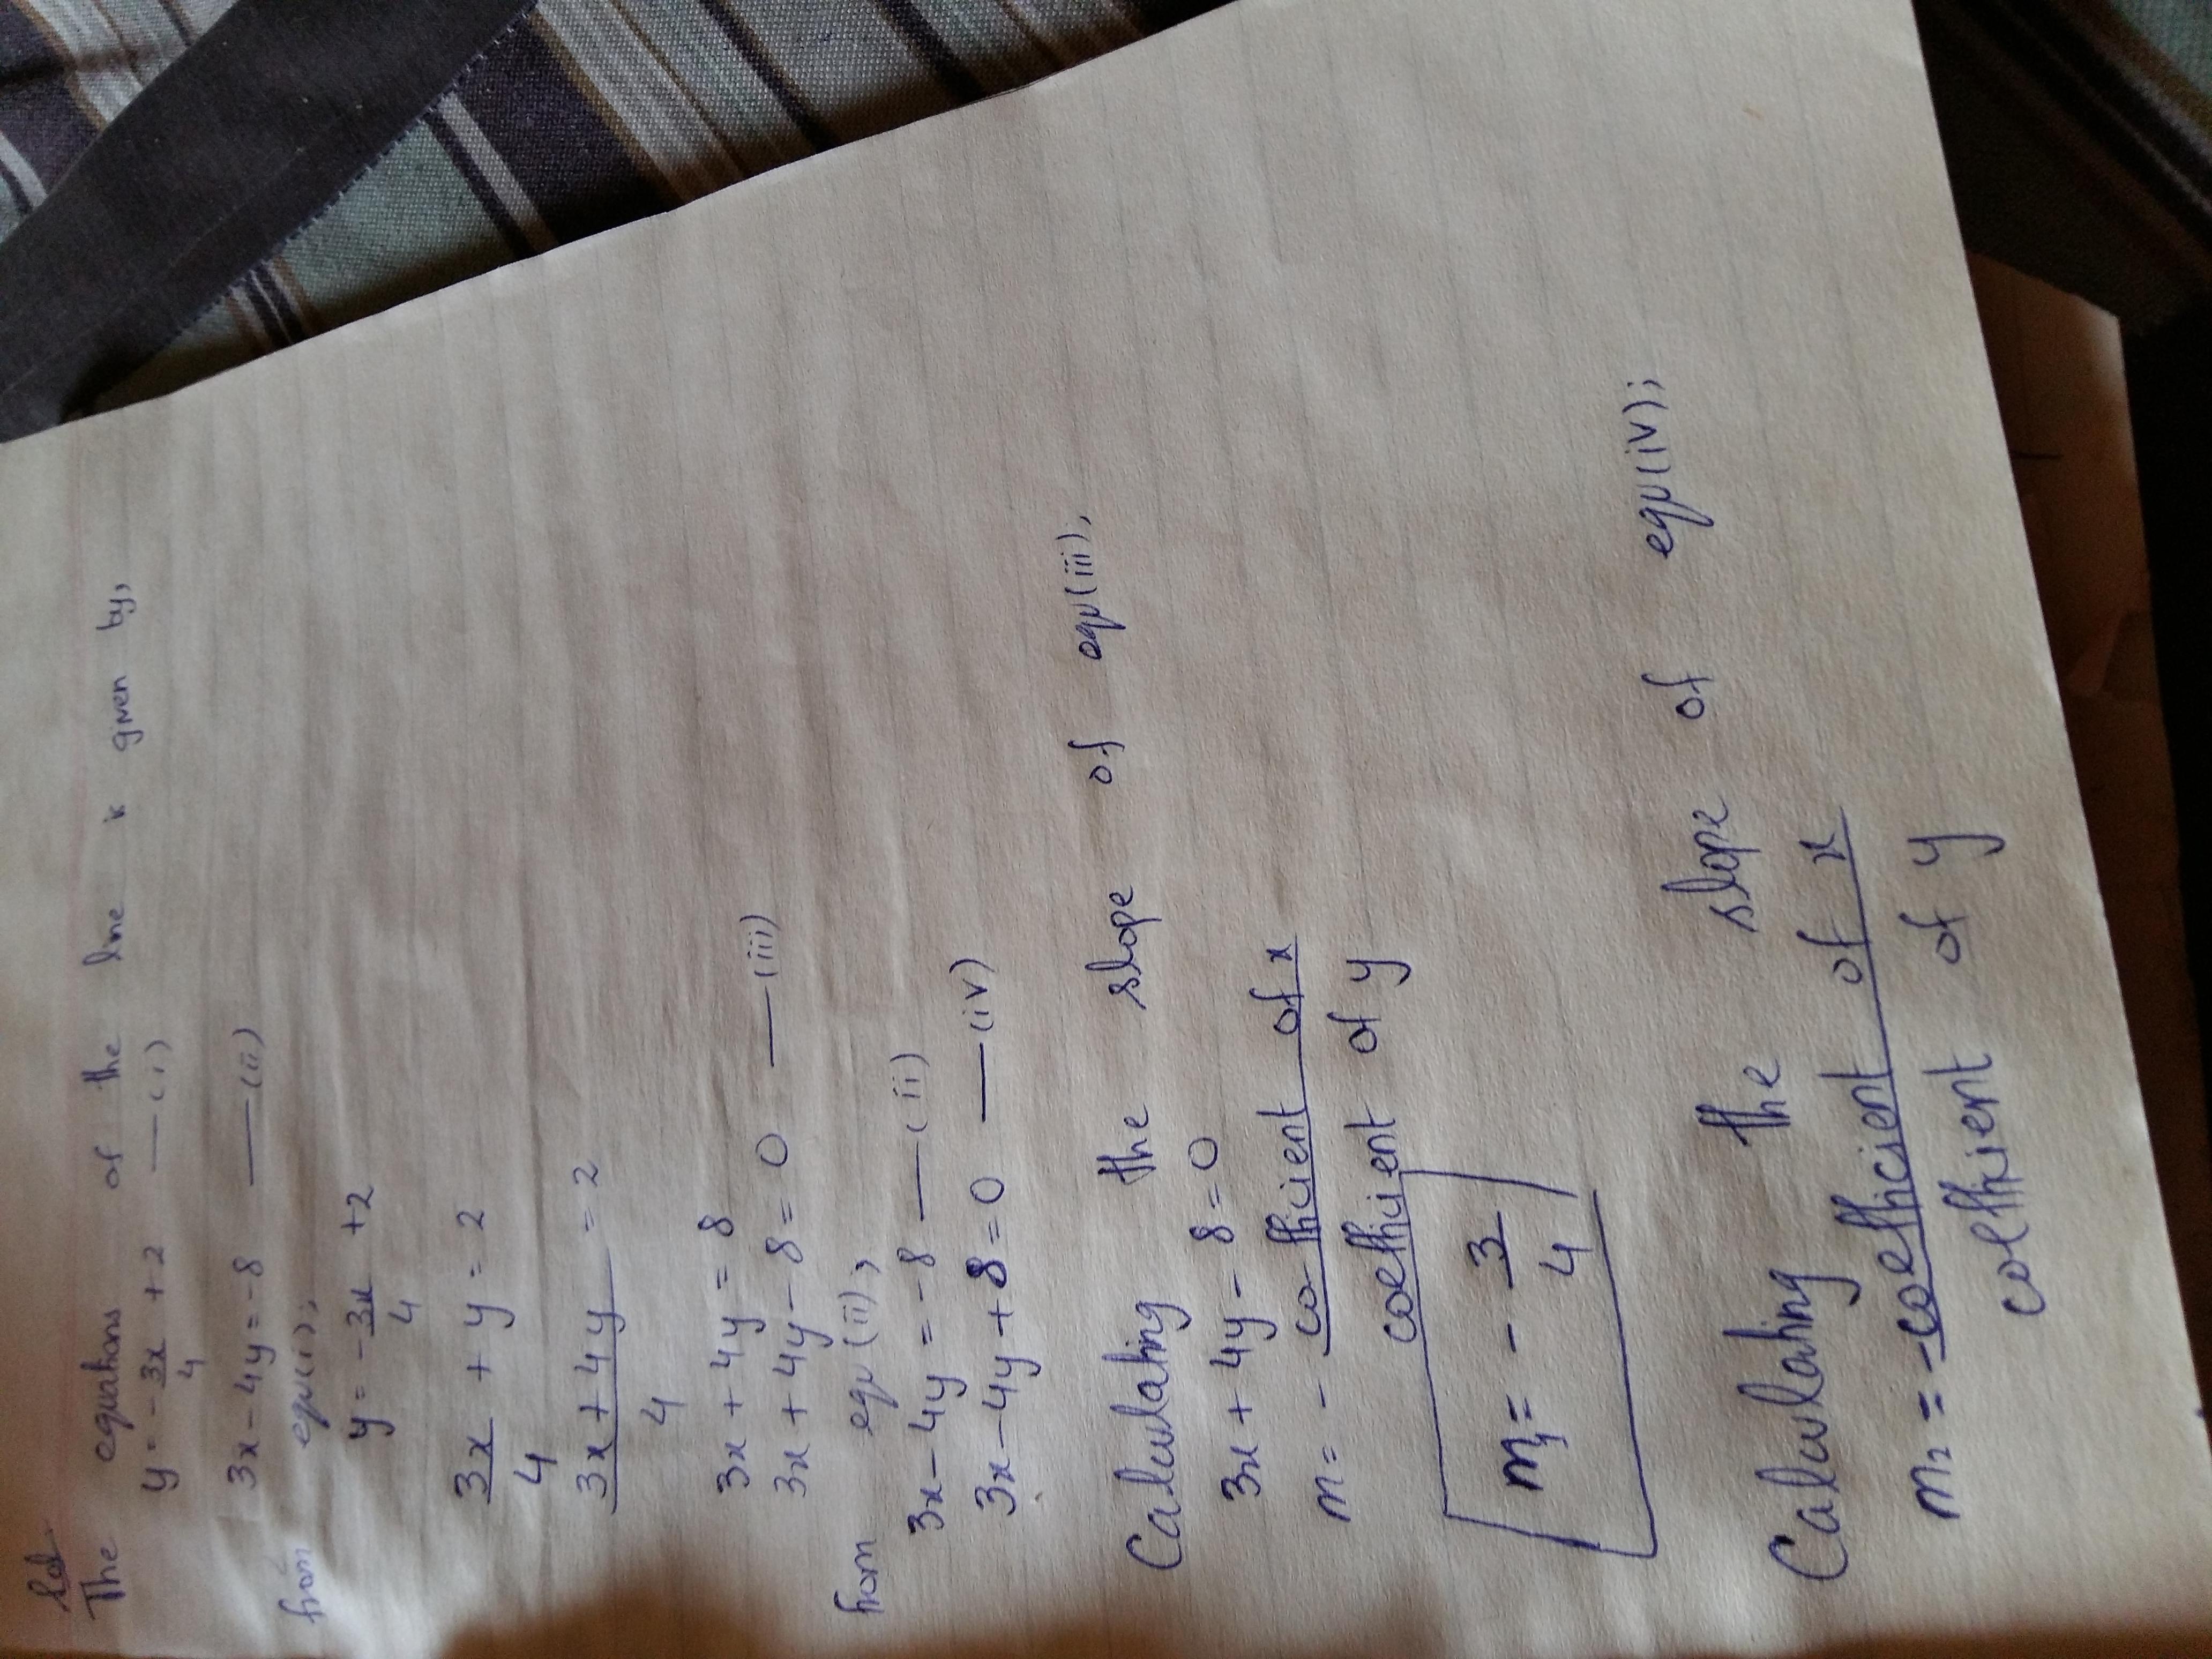 Sol
The equations of the line is given by,
y = -3x/4 + 2 —(i)
3x - 4y = -8 —(ii)
from equ(i);
y = -3x/4 + 2
3x/4 + y = 2
3x + 4y/4 = 2
3x + 4y = 8
3x + 4y - 8 = 0 —(iii)
from equ(ii),
3x - 4y = -8 —(ii)
3x - 4y + 8 = 0 —(iv)
Calculating the slope of equ(iii),
3x + 4y - 8 = 0
m = - co-fficient of x
coefficient of y
m₁ = - 3/4
Calculating the slope of equ(iv);
m₂ = -coefficient of x
coefficient of y